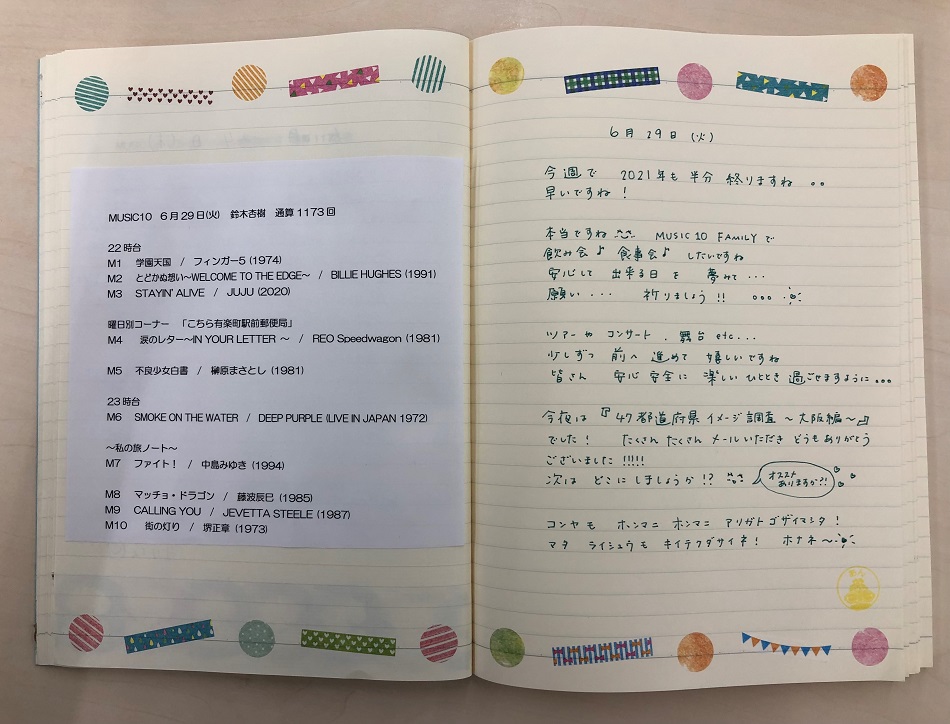 MUSIC10 6月29日(火) 鈴木杏樹 通算1173回
22時台
M1 学園天国 / フィンガー5 (1974)
M2 とどかぬ想い～WELCOME TO THE EDGE～ / BILLIE HUGHES (1991)
M3 STAYIN' ALIVE / JUJU (2020)
曜日別コーナー 「こちら有楽町駅前郵便局」
M4 涙のレター～IN YOUR LETTER ～ / REO Speedwagon (1981)
M5 不良少女白書 / 榊原まさとし (1981)
23時台
M6 SMOKE ON THE WATER / DEEP PURPLE (LIVE IN JAPAN 1972)
～私の旅ノート～
M7 ファイト! / 中島みゆき (1994)
M8 マッチョ・ドラゴン / 藤波辰巳 (1985)
M9 CALLING YOU / JEVETTA STEELE (1987)
M10 街の灯り / 堺正章 (1973)
6月29日(火)
今週で 2021年も半分終りますね 。。
早いですね!
本当ですね MUSIC10 FAMILYで
飲み会♪ 食事会♪ したいですね
安心して 出来る日を 夢みて・・・
願い・・・ 祈りましょう!! 。。。
ツアーや コンサート、舞台 etc...
少しずつ 前へ 進めて 嬉しいですね
皆さん 安心安全に 楽しいひととき 過ごせますように...
今夜は『47都道府県イメージ調査 ～大阪編～』
でした! たくさん たくさん メールいただき どうもありがとう
ございました!!!!!
次は どこに しましょうか!?
オススメ
ありますか?!
コンヤモ ホンマニ ホンマニ アリガトゴザイマシタ!
マタ ライシュウモ キイテクダサイネ! ホナネ～